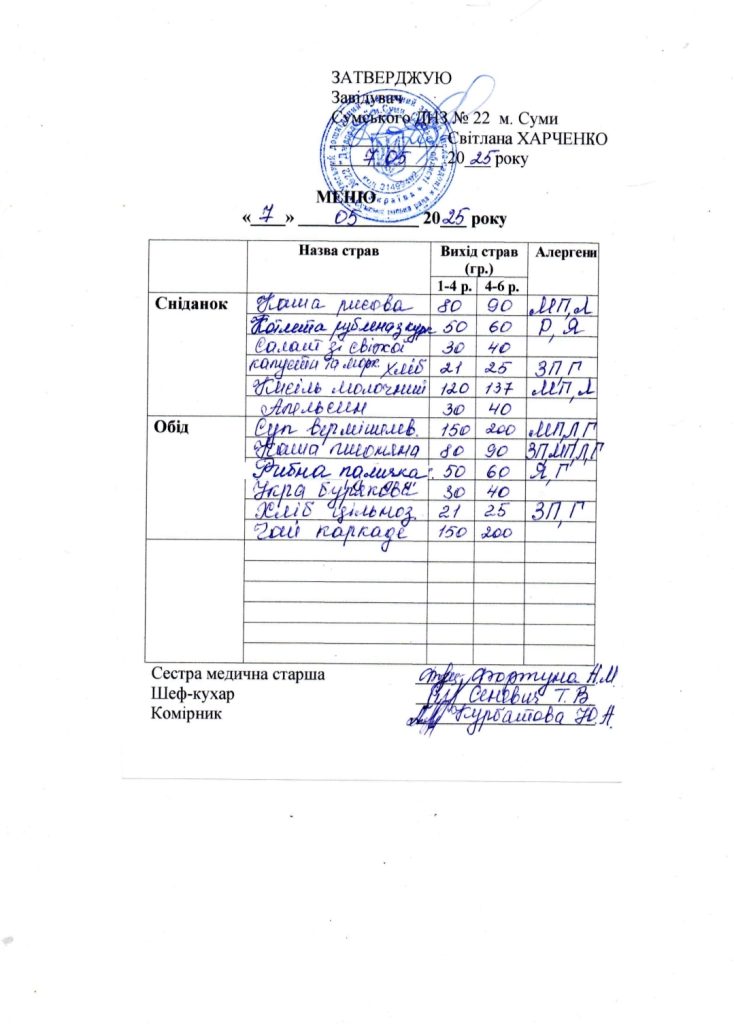 ЗАТВЕРДЖУЮ
Завідувач
Сумського ДНЗ № 22 м. Суми
Світлана ХАРЧЕНКО
7.05 2025 року
МЕНЮ
« 7 » 05 2025 року
Назва страв Вихід страв (гр.) Алергени
1-4 р. 4-6 р.
Сніданок Каша рисова 80 90 МП,Л
Котлета рублена з кур 50 60 Р, Я
Салат зі свіжої 30 40
капусти та морк хліб 21 25 ЗП Г
Кисіль молочний 120 137 МП,Л
Апельсин 30 40
Обід Суп вермішелев. 150 200 МП,Л Г
Каша пшоняна 80 90 ЗП,МП,Л,Г
Рибна паличка 50 60 Я, Г
Ікра бурякова 30 40
Хліб цільноз 21 25 ЗП, Г
Чай каркаде 150 200
Сестра медична старша Фортуна Н.М
Шеф-кухар Сеневич Т.В
Комірник Курбатова Ю.А.